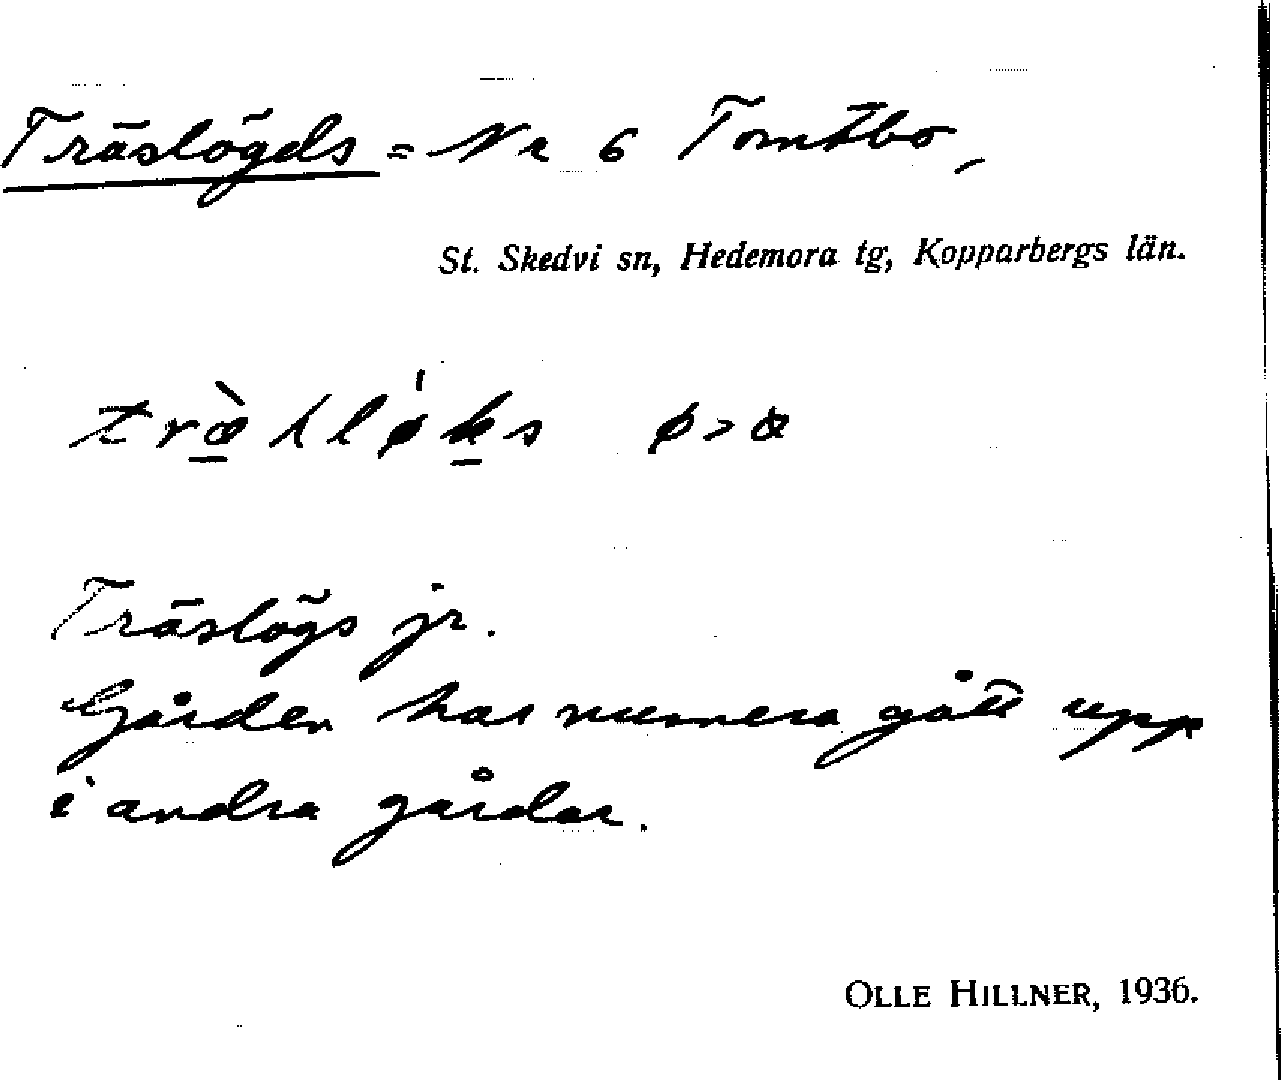 Träslögds = Nr 6 Tomtbo,
St. Skedvi sn, Hedemora tg, Kopparbergs län.
ø > œ
Träslögs jr.
Gården har numera gått upp
i andra gårdar.
OLLE HILLNER, 1936.